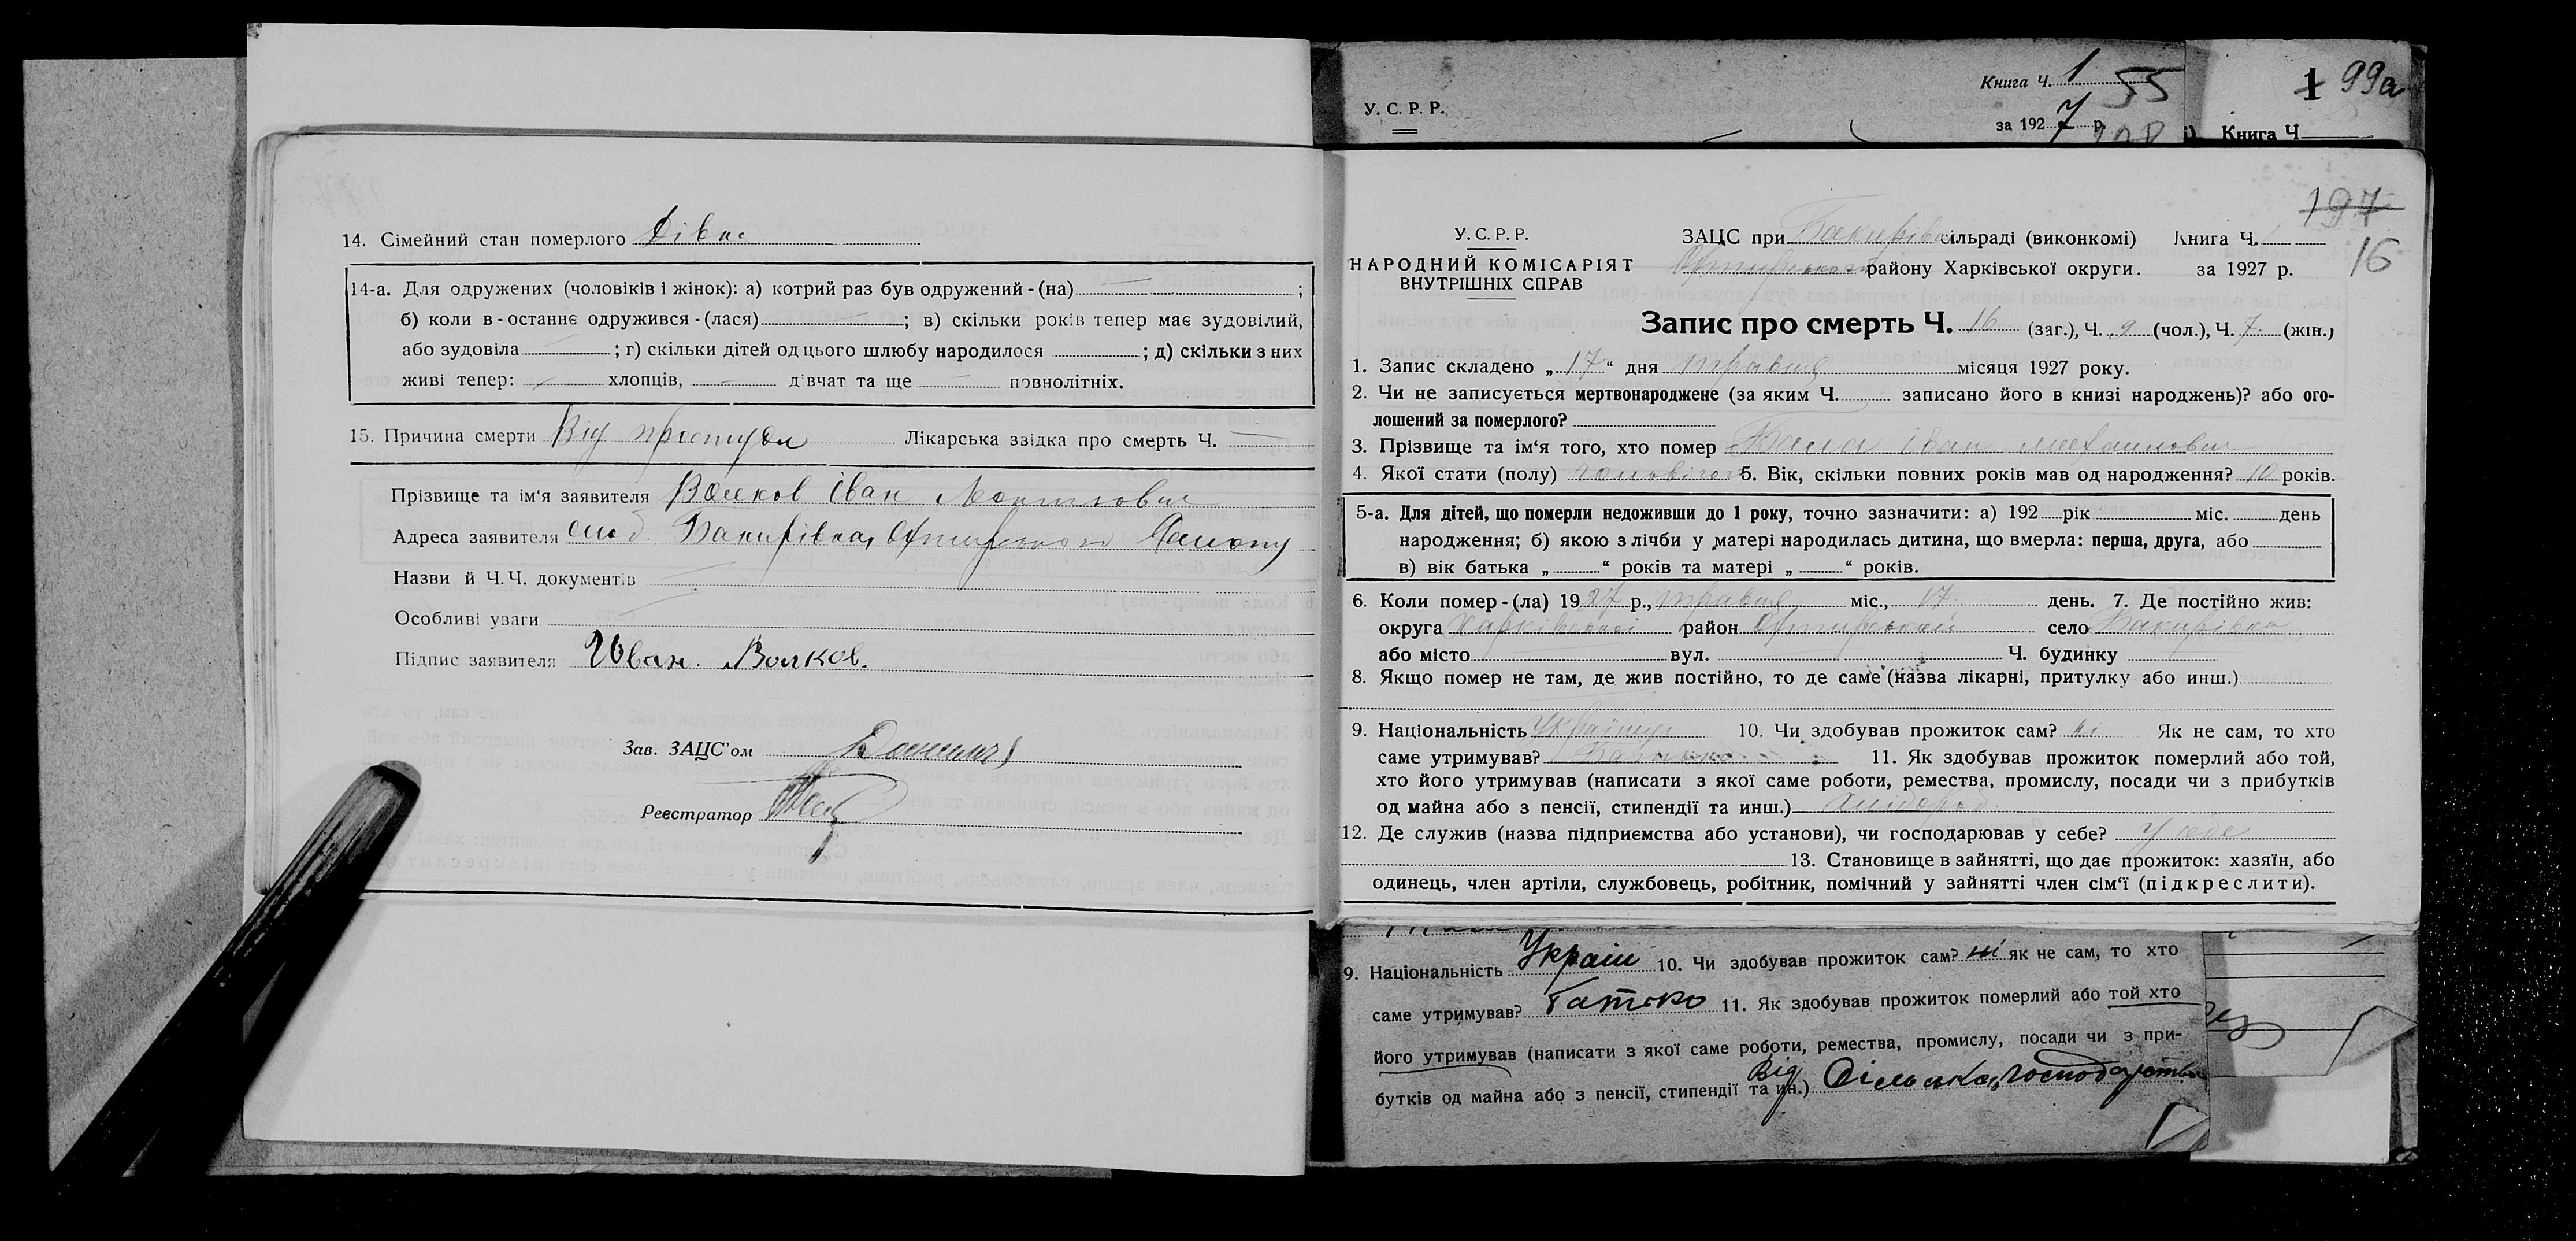 14. Сімейний стан померлого Дівка
14-а. Для одружених (чоловіків і жінок): а) котрий раз був одружений - (на) ;
б) коли в - останнє одружився - (лася) ; в) скільки років тепер має зудовілий,
або зудовіла ; г) скільки дітей од цього шлюбу народилося ; д) скільки з них
живі тепер: хлопців, дівчат та ще повнолітніх.
15. Причина смерти Від простуди Лікарська звідка про смерть Ч.
Прізвище та ім'я заявителя Волков Іван
Адреса заявителя слоб. Бакирівка,
Назви й Ч.Ч. документів
Особливі уваги
Підпис заявителя Иван. Волков.
Зав. ЗАЦС'ом
Реєстратор
У. С. Р. Р.
Книга Ч. 1 55
за 1927 р.
1 99а
Книга Ч
197
16
У. С. Р. Р.
НАРОДНИЙ КОМІСАРІЯТ
ВНУТРІШНІХ СПРАВ
ЗАЦС при Бакирівс сільраді (виконкомі) Книга Ч.
району Харківської округи. за 1927 р.
Запис про смерть Ч. 16 (заг.), Ч. 9 (чол.), Ч. 7 (жін.)
1. Запис складено „ 17 “ дня травня місяця 1927 року.
2. Чи не записується мертвонароджене (за яким Ч. записано його в книзі народжень)? або ого-
лошений за померлого?
3. Прізвище та ім'я того, хто помер Іван
4. Якої стати (полу) 5. Вік, скільки повних років мав од народження? 10 років.
5-а. Для дітей, що померли недоживши до 1 року, точно зазначити: а) 192 рік міс. день
народження; б) якою з лічби у матері народилась дитина, що вмерла: перша, друга, або
в) вік батька „ “ років та матері „ “ років.
6. Коли помер - (ла) 1927 р., травня міс., 17 день. 7. Де постійно жив:
округа Харківської район село Бакирівка
або місто вул. Ч. будинку
8. Якщо помер не там, де жив постійно, то де саме (назва лікарні, притулку або инш.)
9. Національність Українця 10. Чи здобував прожиток сам? ні Як не сам, то хто
саме утримував? Батько 11. Як здобував прожиток померлий або той,
хто його утримував (написати з якої саме роботи, ремества, промислу, посади чи з прибутків
од майна або з пенсії, стипендії та инш.) хлібороб
12. Де служив (назва підприємства або установи), чи господарював у себе? У себе
13. Становище в зайнятті, що дає прожиток: хазяїн, або
одинець, член артіли, службовець, робітник, помічний у зайнятті член сім'ї (підкреслити).
9. Національність Україн 10. Чи здобував прожиток сам? ні як не сам, то хто
саме утримував? Батько 11. Як здобував прожиток померлий або той хто
його утримував (написати з якої саме роботи, ремества, промислу, посади чи з при-
бутків од майна або з пенсії, стипендії та ин.) Від Сільська господарства